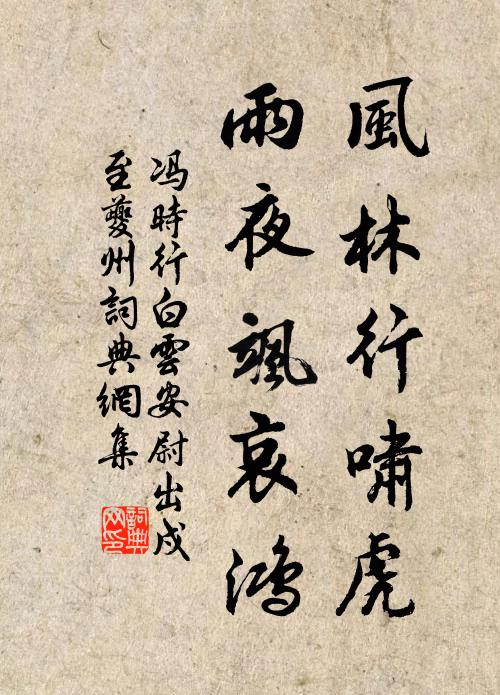 風林行嘯虎
雨夜颯哀鴻
冯時行白雲安尉出戍
至夔州詞典網集
詞典
网印